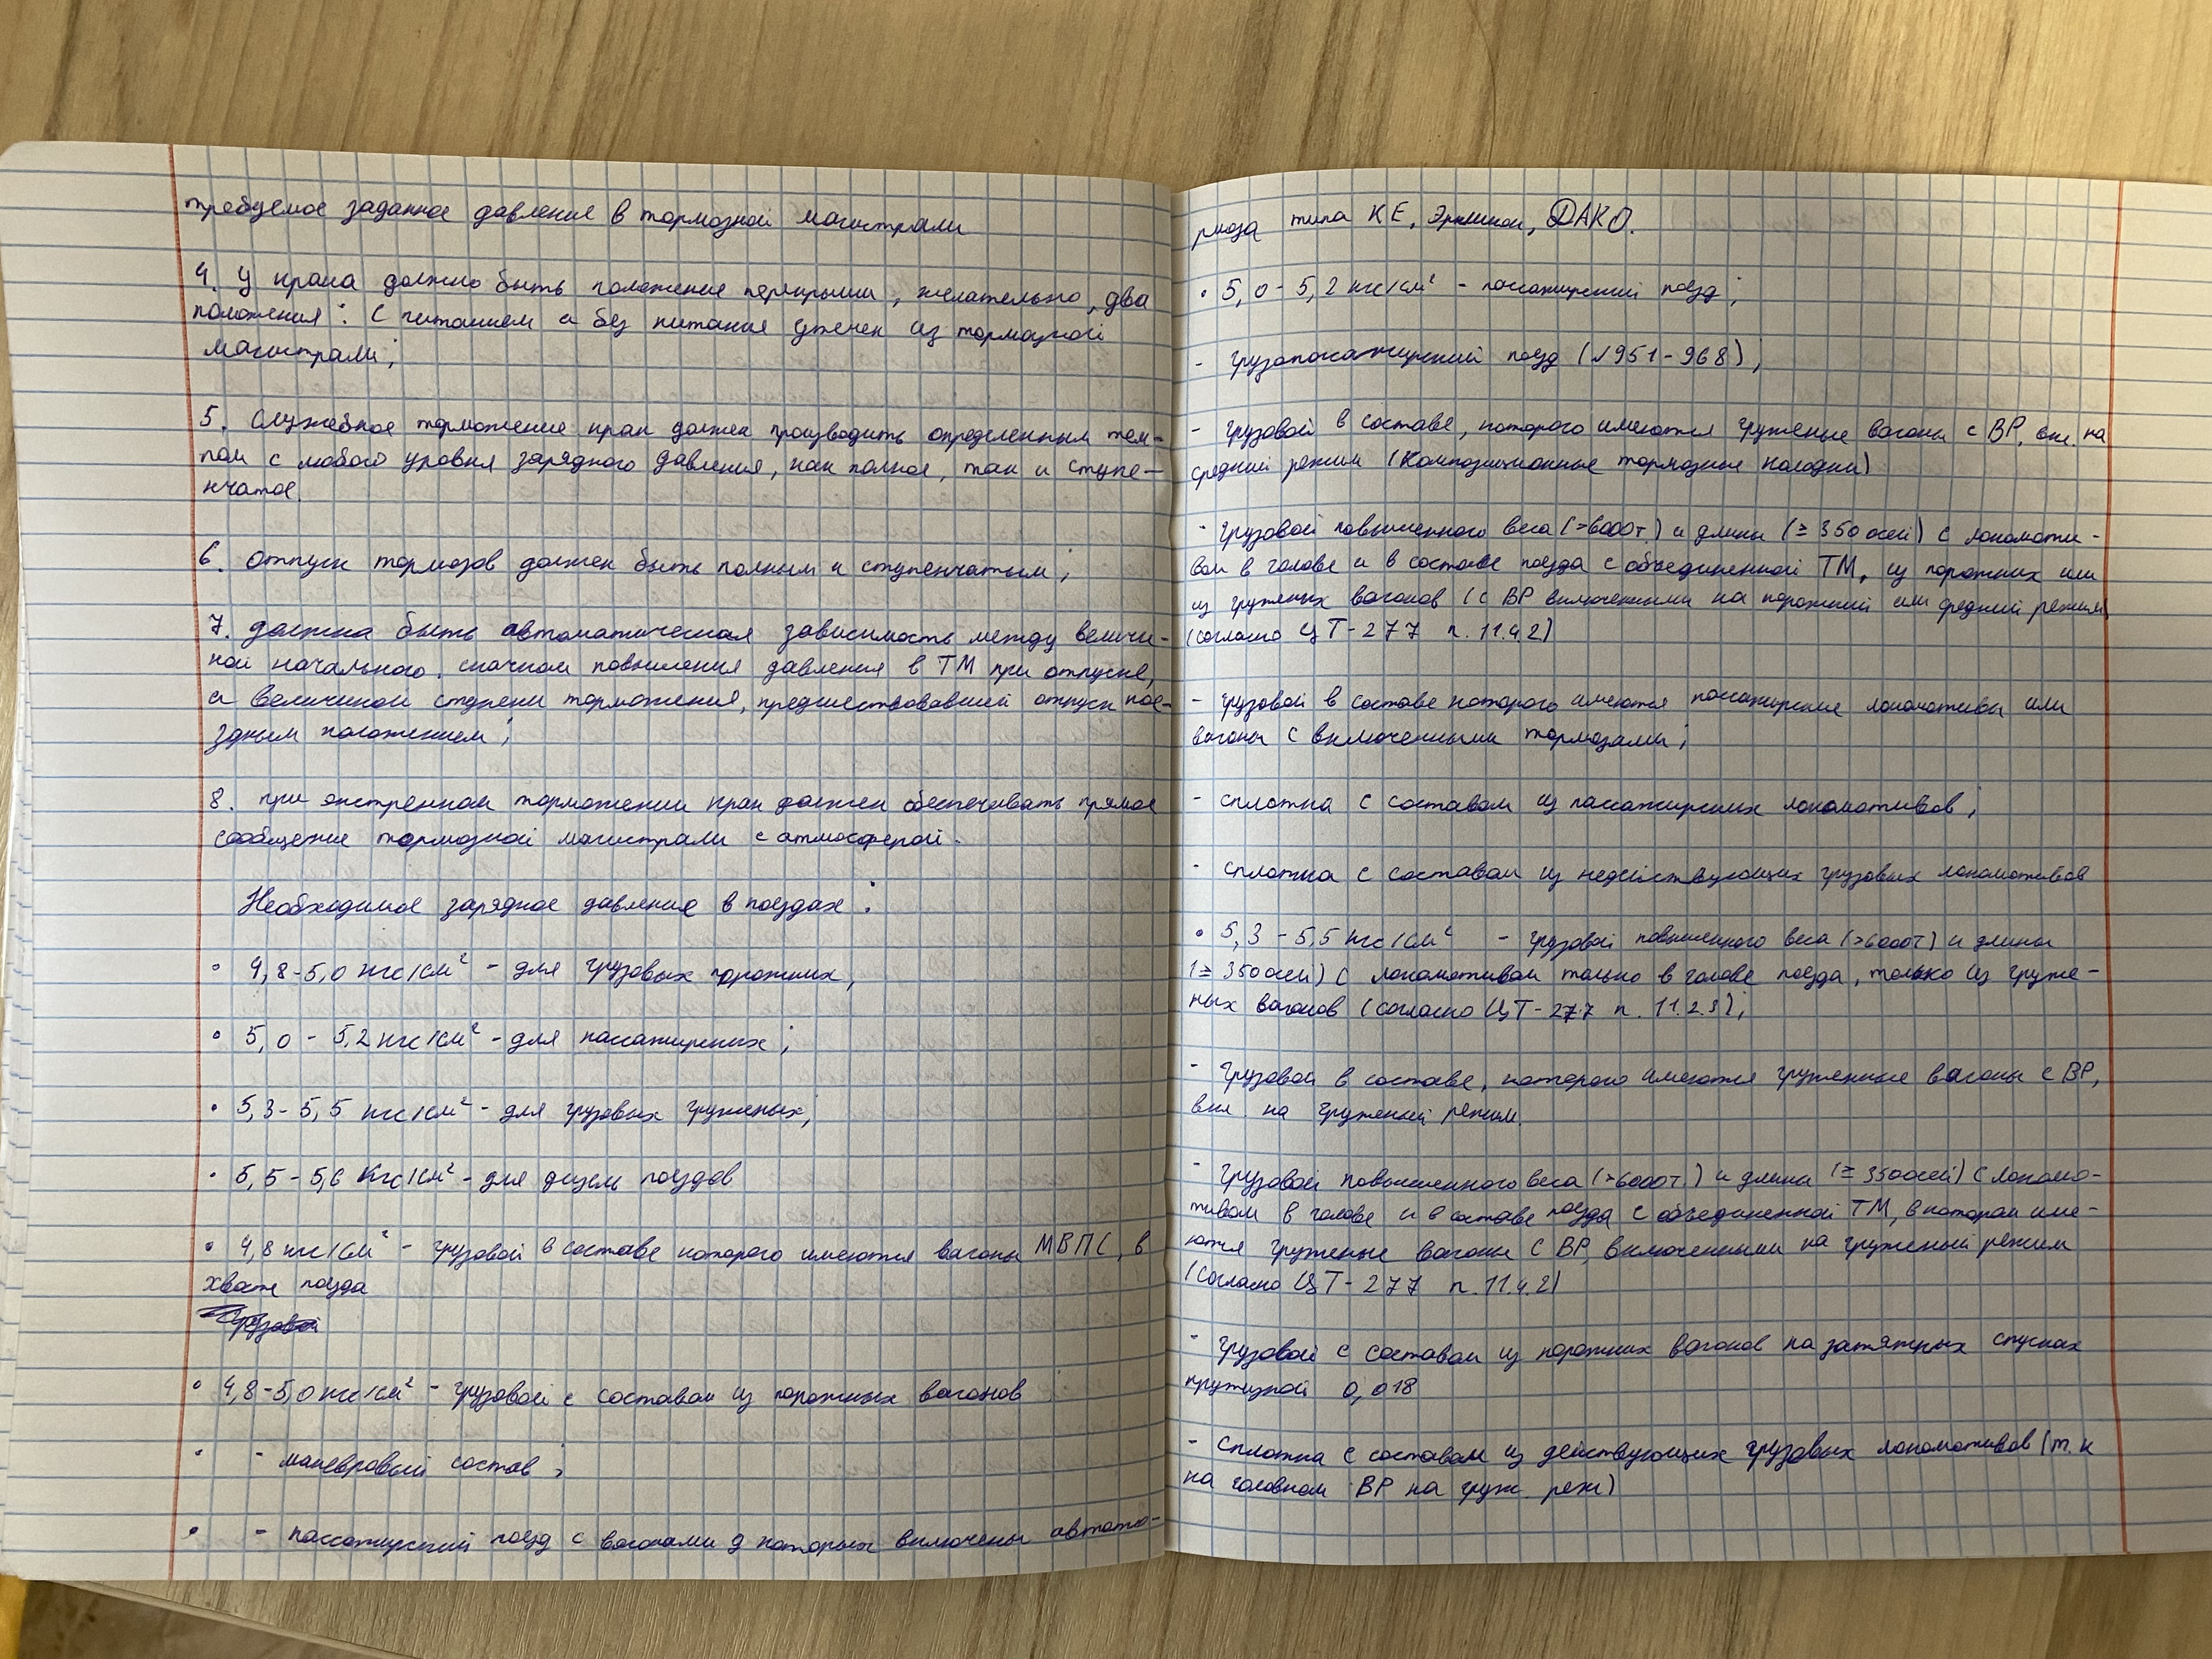 требуемое заданное давление в тормозной магистрали
4. У крана должно быть положение перекрыши, желательно, два
положения: с питанием и без питания утечек из тормозной
магистрали;
5. Служебное торможение кран должен производить определенным тем-
пом с любого уровня зарядного давления, как полное, так и ступе-
нчатое.
6. Отпуск тормозов должен быть полным и ступенчатым;
7. должна быть автоматическая зависимость между величи-
ной начального скачком повышения давления в ТМ при отпуске,
и величиной ступени торможения, предшествовавшей отпуск пое-
здным положением;
8. при экстренном торможении кран должен обеспечивать прямое
сообщение тормозной магистрали с атмосферой.
Необходимое зарядное давление в поездах:
• 4,8-5,0 кгс/см² - для грузовых порожних,
• 5,0 - 5,2 кгс/см² - для пассажирских;
• 5,3 - 5,5 кгс/см² - для грузовых груженых;
• 5,5 - 5,6 кгс/см² - для дизель поездов
• 4,8 кгс/см² - грузовой в составе которого имеются вагоны МВПС, в
хвосте поезда
• 4,8-5,0 кгс/см² - грузовой с составом из порожных вагонов
• - маневровый состав;
• - пассажирский поезд с вагонами у которых включены автото-
рмоза типа КЕ, Эрликон, ДАКО.
• 5,0 - 5,2 кгс/см² - пассажирский поезд;
- грузопассажирский поезд (№951-968);
- грузовой в составе, которого имеются груженые вагоны с ВР, вкл. на
средний режим (Композиционные тормозные колодки)
- грузовой повышенного веса (>6000т.) и длины (≥ 350 осей) с локомоти-
вом в голове и в составе поезда с объединенной ТМ, из порожних или
из груженых вагонов (с ВР включенными на порожний или средний режим)
(согласно ЦТ-277 п. 11.4.2)
- грузовой в составе которого имеются пассажирские локомотивы или
вагоны с включенными тормозами;
- сплотка с составом из пассажирских локомотивов;
- сплотка с составом из недействующих грузовых локомотивов
• 5,3 - 5,5 кгс/см² - грузовой повышенного веса (>6000т) и длины
(≥ 350 осей) с локомотивом только в голове поезда, только из груже-
ных вагонов (согласно ЦТ-277 п. 11.2.3);
- грузовой в составе, которого имеются груженные вагоны с ВР,
вкл. на груженый режим.
- Грузовой повышенного веса (>6000т.) и длина (≥ 350 осей) с локомо-
тивом в голове и в составе поезда с объединенной ТМ, в котором име-
ются груженые вагоны с ВР, включенными на груженый режим
(согласно ЦТ-277 п. 11.4.2)
- грузовой с составом из порожних вагонов на затяжных спусках
0,018
- сплотка с составом из действующих грузовых локомотивов (т.к
на головном ВР на груж. реж)